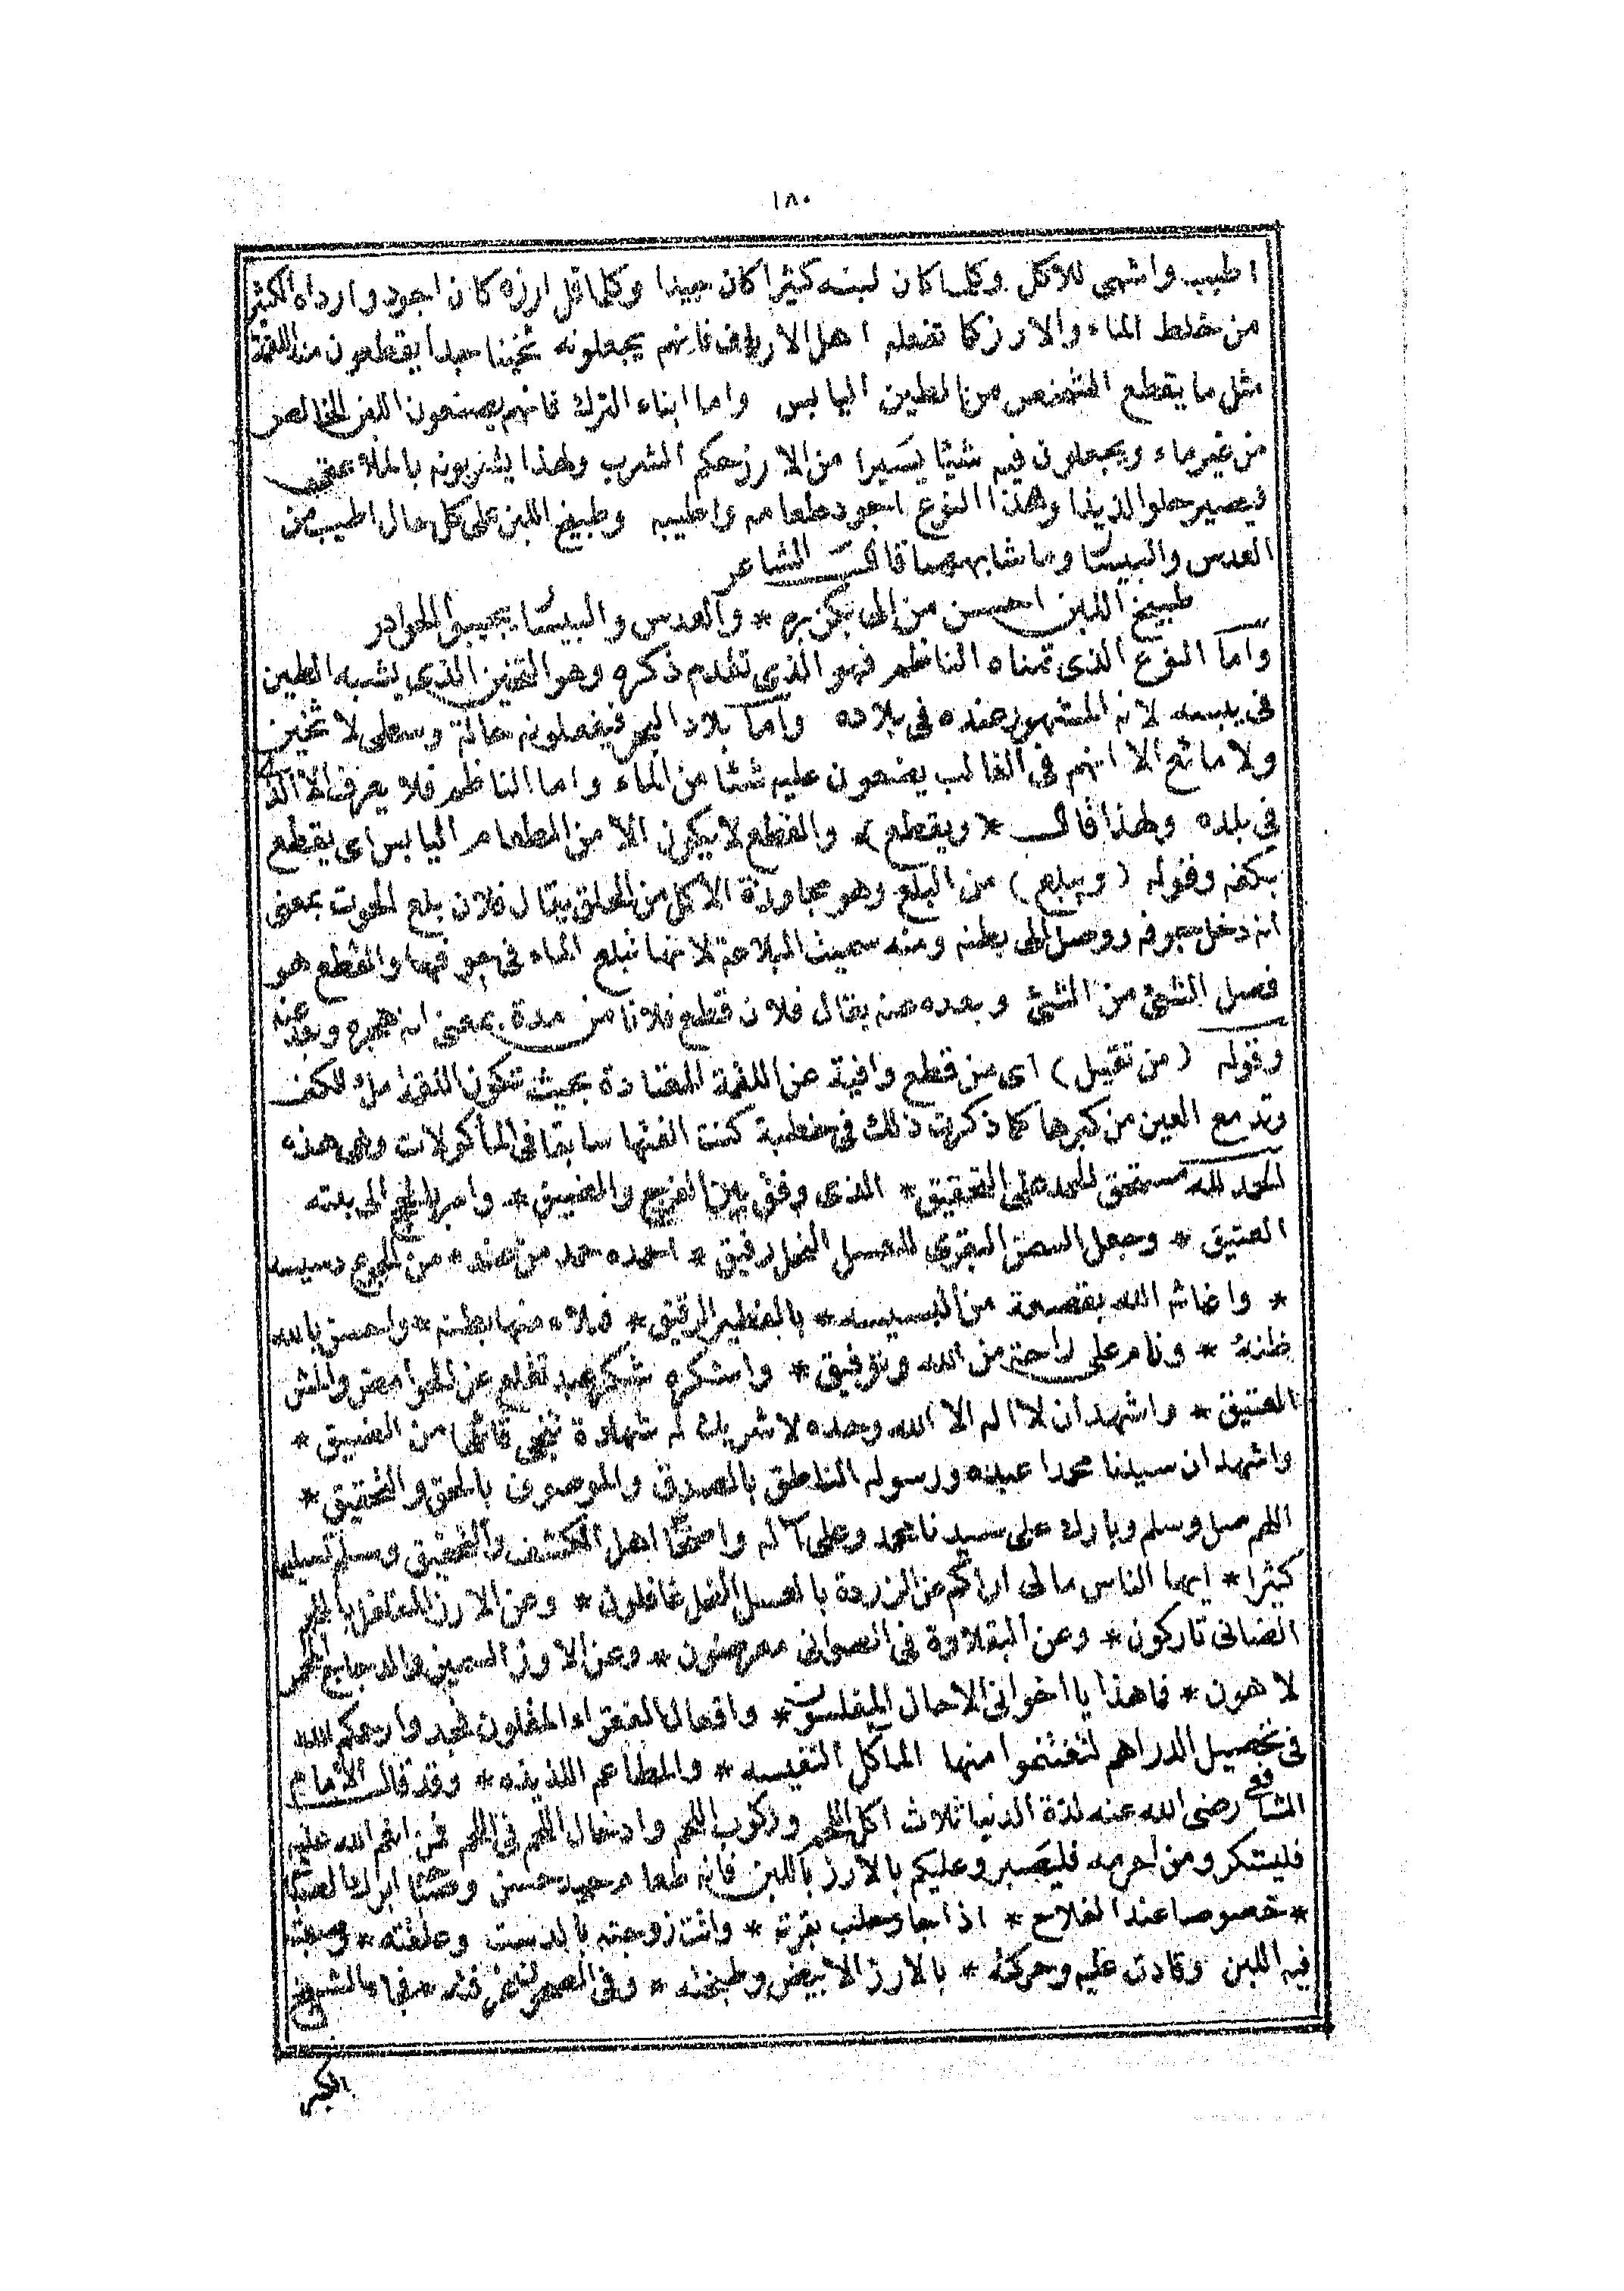 ١٨٠
اطيب واشهى للاكل وكلما كان لبنه كثيرا كان جيدا وكلما قل ارزه كان اجود وارداه الكثير
من خلط الماء والارز كما تفعله اهل الارياف فانهم يجعلونه ثخينا جدا يقطعون منه اللقمة
مثل ما يقطع الشخص من الطين اليابس واما ابناء الترك فانهم يصنعون اللبن الخالص
من غير ماء ويجعلون فيه شيئا يسيرا من الارز حكم الشرب ولهذا يشربونه بالملاعق
فيصير حلوا لذيذا وهذا النوع اجود طعامه واطيبه وطبيخ اللبن على كل حال اطيب من
العدس والبيسا وما شابههما قال الشاعر
طبيخ اللبن احسن من الى بكزبره * والعدس والبيسا يجيبوا الجوادر
واما النوع الذى تمناه الناظم فهو الذى تقدم ذكره وهو الثخين الذى يشبه الطين
فى يبسه لانه المشهور عنده فى بلاده واما بلاد البحر فيفعلونه حالة وسطى لا ثخين
ولا مائع الا انهم فى الغالب يضعون عليه شئا من الماء واما الناظم فلا يعرف الا الذى
فى بلده ولهذا قال * (ويقطع) * والقطع لا يكون الا من الطعام اليابس اى يقطع
بكفه وقوله (ويبلع) من البلع وهو مجاوزة الاكل من الحلق يقال فلان بلع الحوت بمعنى
انه دخل جوفه ووصل الى بطنه ومنه سميت البلاعة لانها تبلع الماء فى جوفها والقطع هو
فصل الشئ من الشئ وبعده عنه يقال فلان قطع فلانا من مدة بمعنى انه هجره وبعد عنه
وقوله (من تقيل) اى من قطع وافية عن اللقمة المعتادة بحيث تكون اللقمة ملء الكف
وتدمع العين من كبرها كما ذكرت ذلك فى خطبة كنت الفتها سابقا فى الماكولات وهى هذه
الحمد لله مستحق الحمد على التحقيق * الذى وفق بين الفرج والضيق * وامر بالحج الى بيته
العتيق * وجعل السمن البقرى للعسل النحل رفيق * احمده حمد من عنده من الجوع دسيسه
* واغاثه الله بقصعة من البسيسه * بالفطير الرقيق * فملاء منها بطنه * واحسن بالله
ظنه * ونام على راحة من الله وتوفيق * واشكره شكر عبد تقلع عن الحوامض والمش
العتيق * واشهد ان لا اله الا الله وحده لا شريك له شهادة تنجى قائلها من الضيق *
واشهد ان سيدنا محمدا عبده ورسوله الناطق بالصدق والموصوف بالحق والتحقيق *
اللهم صل وسلم وبارك على سيدنا محمد وعلى آله واصحابه اهل الكشف والتحقيق وسلم تسليما
كثيرا * ايها الناس ما لى اراكم عن الزردة بالعسل النحل غافلون * وعن الارز المفلفل باللحم
الضانى تاركون * وعن البقلاوة فى الصوانى معرضون * وعن الاوز السمين والدجاج المحمر
لاهون * فما هذا يا اخوانى الا حال المفلسون * وافعال الفقراء المقلون فجدوا رحمكم الله
فى تحصيل الدراهم لتغتنموا منها الماكل النفيسه * والمطاعم اللذيذه * وقد قال الامام
الشافعى رضى الله عنه لذة الدنيا ثلاث اكل اللحم وركوب اللحم وادخال اللحم فى اللحم فمن انعم الله عليه
فليشكر ومن احرمه فليصبر وعليكم بالارز باللبن فانه طعام جيد حسن
* خصوصا عند الفلاح * اذا جا وحلب بقرته * واتت زوجته بالدست وعلقته * وصبت
فيه اللبن وقادت عليه وحركته * بالارز الابيض وطبخته *